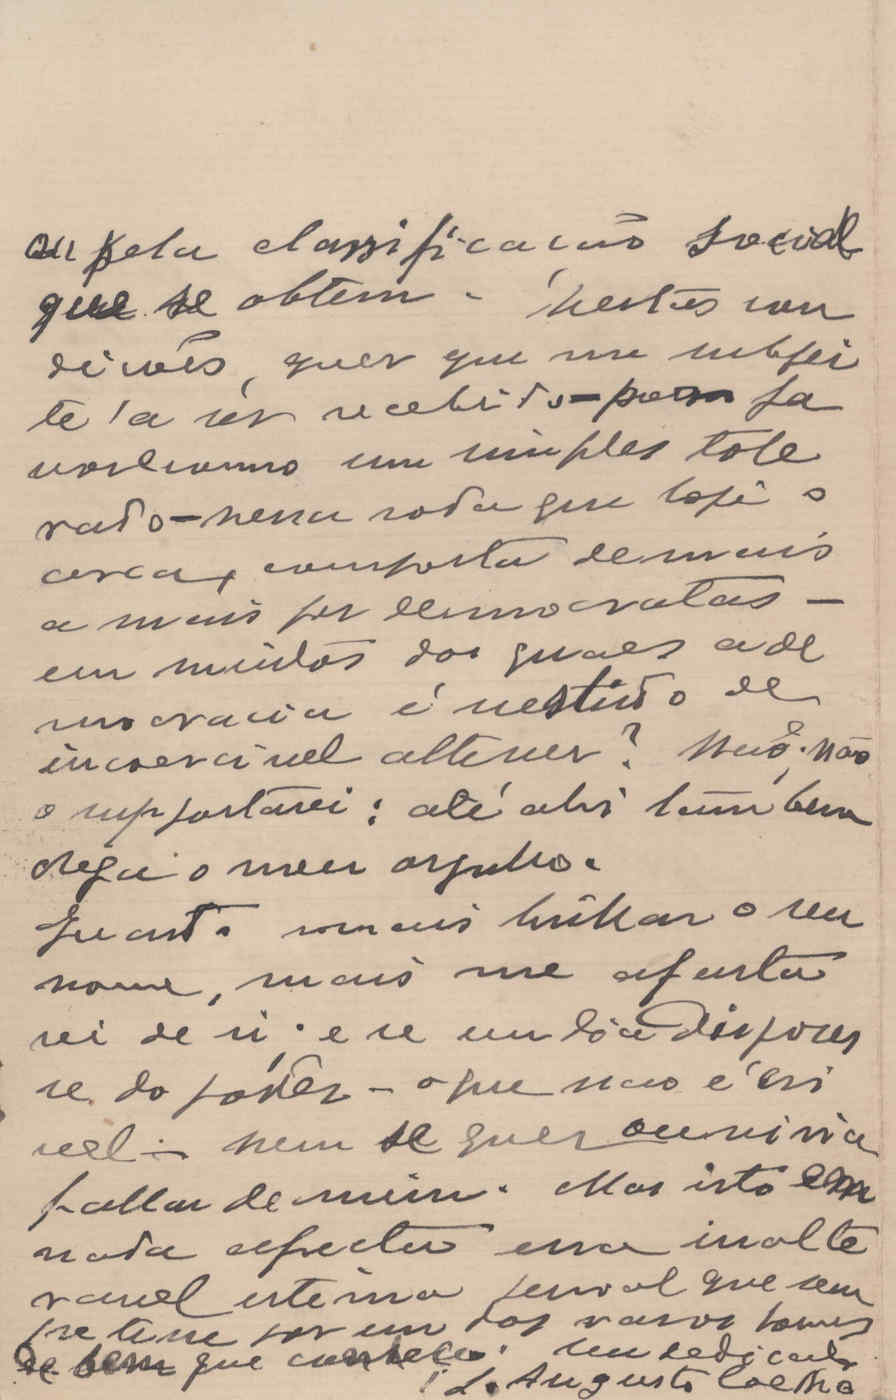 ou pela classificação social
que se obtem. Nestas con
dições, quer que me subjei
te a ser recebido – por fa
vor como um simples tole
rado – nessa roda que hoje o
cerca, composta de mais
a mais por democratas –
em muitos dos quaes a de
mocracia é vestido de
incoercivel altener? Não, não
o supportarei: até ahi tambem
chega o meu orgulho.
Quanto mais brilhar o seu
nome, mais me afasta
rei de si; e se um dia dispozes
se do poder – o que não é cri
vel – nem se quer ouviria
fallar de mim. Mas isto em
nada affecta essa inalte
ravel estima pessoal que sem
pre tive por um dos raros homens
de bem que conheço. Seu dedicado
Augusto Coelho